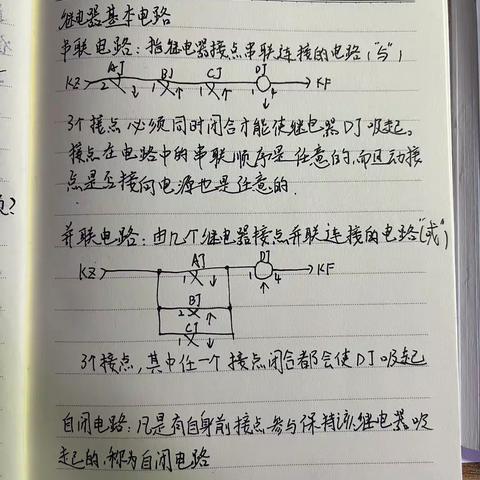 继电器基本电路
串联电路：指继电器接点串联连接的电路（"与"）
AJ BJ CJ DJ
KZ 2 ↓ 1 ↑ 1 ↑ 1 4 KF
3个接点必须同时闭合才能使继电器DJ吸起。
接点在电路中的串联顺序是任意的，而且动接
点是否接向电源也是任意的.
并联电路：由几个继电器接点并联连接的电路（"或"）
AJ DJ
KZ 1 ↓ 1 4 KF
↑
BJ
2 ↑
CJ
1 ↓
3个接点，其中任一个接点闭合都会使DJ吸起
自闭电路：凡是有自身前接点参与保持该继电器吸
起的，称为自闭电路